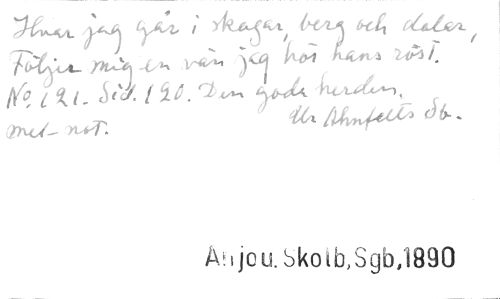 Hvar jag går i skogar, berg och dalar,
Följer mig en vän jag hör hans röst.
No. 121. Sid. 120. Den gode herden.
Ur Ahnfelts Sb.
med not.
Anjou. Skolb, Sgb, 1890